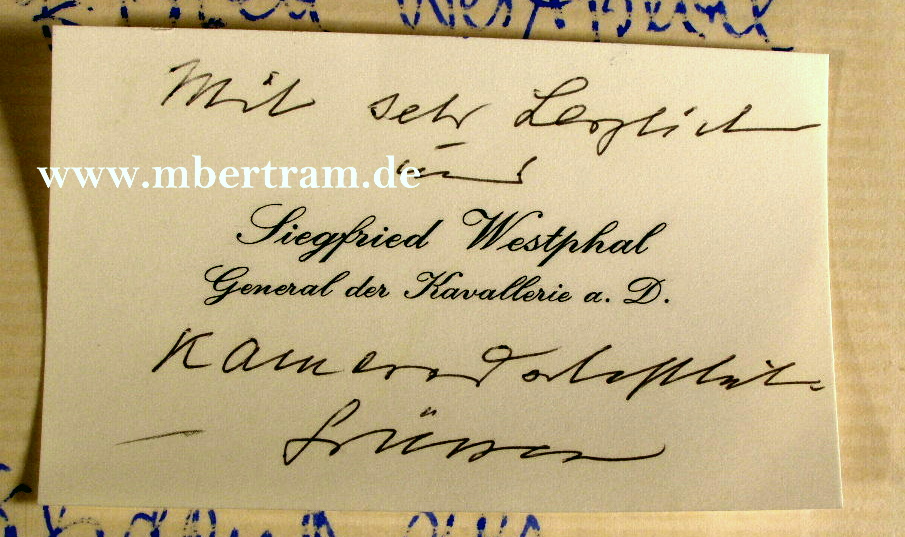 Mit sehr herzlich
und
www.mbertram.de
Siegfried Westphal
General der Kavallerie a. D.
Kameradschaftlich
Grüssen